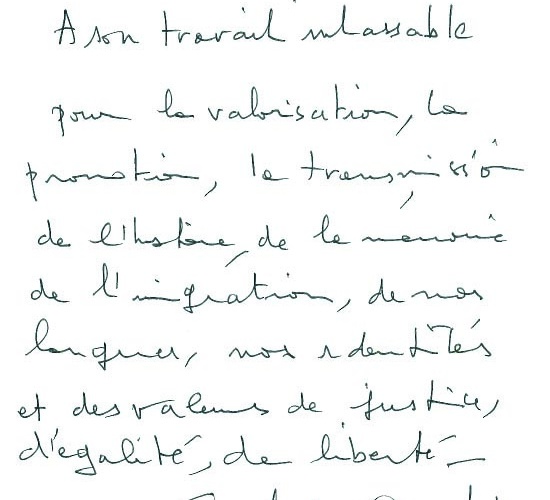 A son travail inlassable
pour la valorisation, la
promotion, la transmission
de l'histoire, de la mémoire
de l'immigration, de nos
langues, nos identités
et des valeurs de justice,
d'égalité, de liberté –